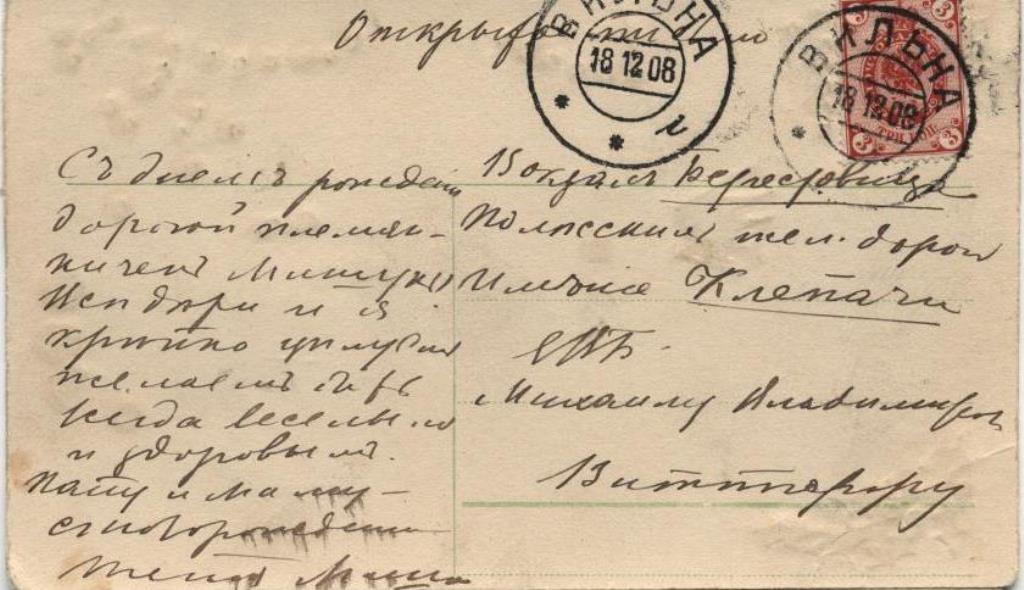 Открытое письмо
ВИЛЬНА
18 12 08
ВИЛЬНА
18 12 08
3 3
ТРИ КОП.
Съ днемъ рожденія
дорогой племян-
ничекъ Мишука
и я
крѣпко цѣлуемъ
желаемъ быть
всегда веселымъ
и здоровымъ.
Папу и маму
съ новорожденнымъ
тетя Маня
Вокзалъ Берестовица
Полѣсскихъ жел. дорог
Имѣніе Клепачи
ЕВБ.
Михаилу Владимиров
Виттторфу